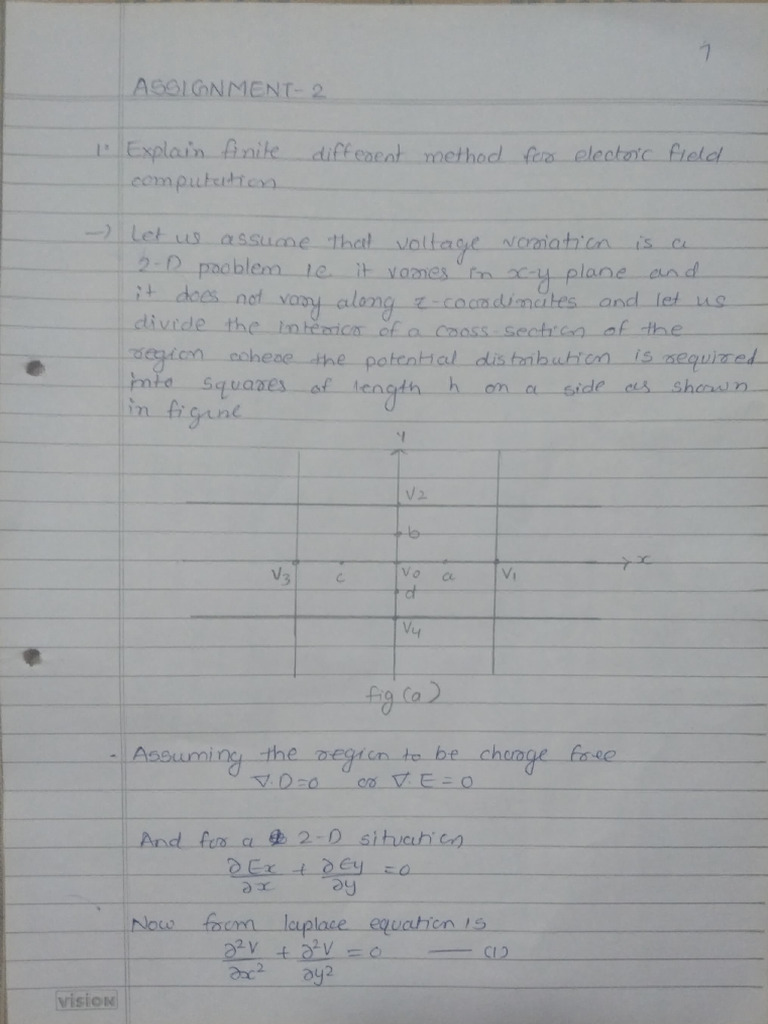 7
ASSIGNMENT-2
1. Explain finite different method for electric field
computation
→ Let us assume that voltage variation is a
2-D problem ie it varies in x-y plane and
it does not vary along z-coordinates and let us
divide the interior of a cross section of the
region where the potential distribution is required
into squares of length h on a side as shown
in figure
Y
V2
b
x
V3 c V0 a V1
d
V4
fig (a)
- Assuming the region to be charge free
∇.D=0 or ∇.E=0
And for a 2-D situation
∂Ex/∂x + ∂Ey/∂y = 0
Now from laplace equation is
∂²V/∂x² + ∂²V/∂y² = 0 —— (1)
vision